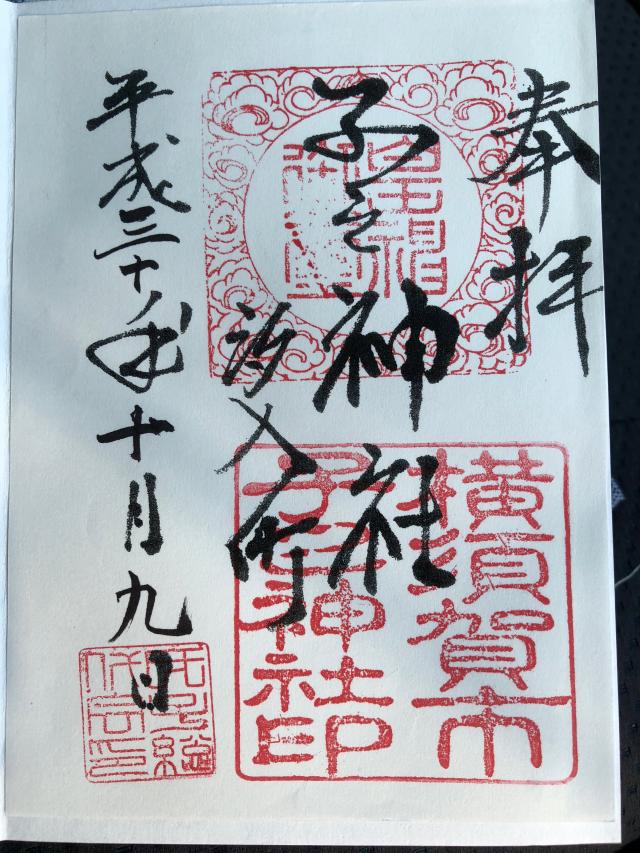 奉拝
子之神社
汐入町
平成三十年十月九日
横須賀市
子之神社印
氏子総
代会印